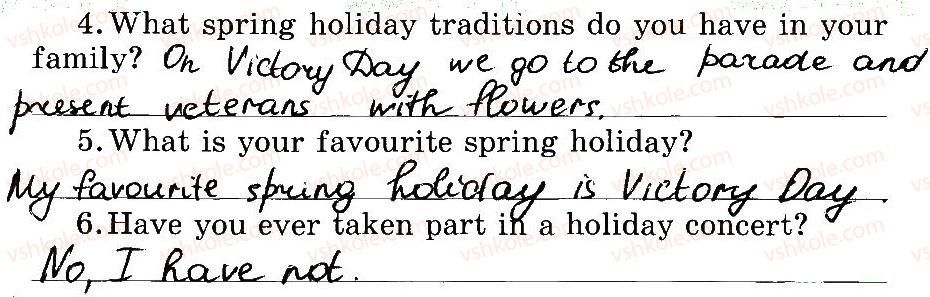 4. What spring holiday traditions do you have in your
family? On Victory Day we go to the parade and
present veterans with flowers.
5. What is your favourite spring holiday?
My favourite spring holiday is Victory Day.
6. Have you ever taken part in a holiday concert?
No, I have not.